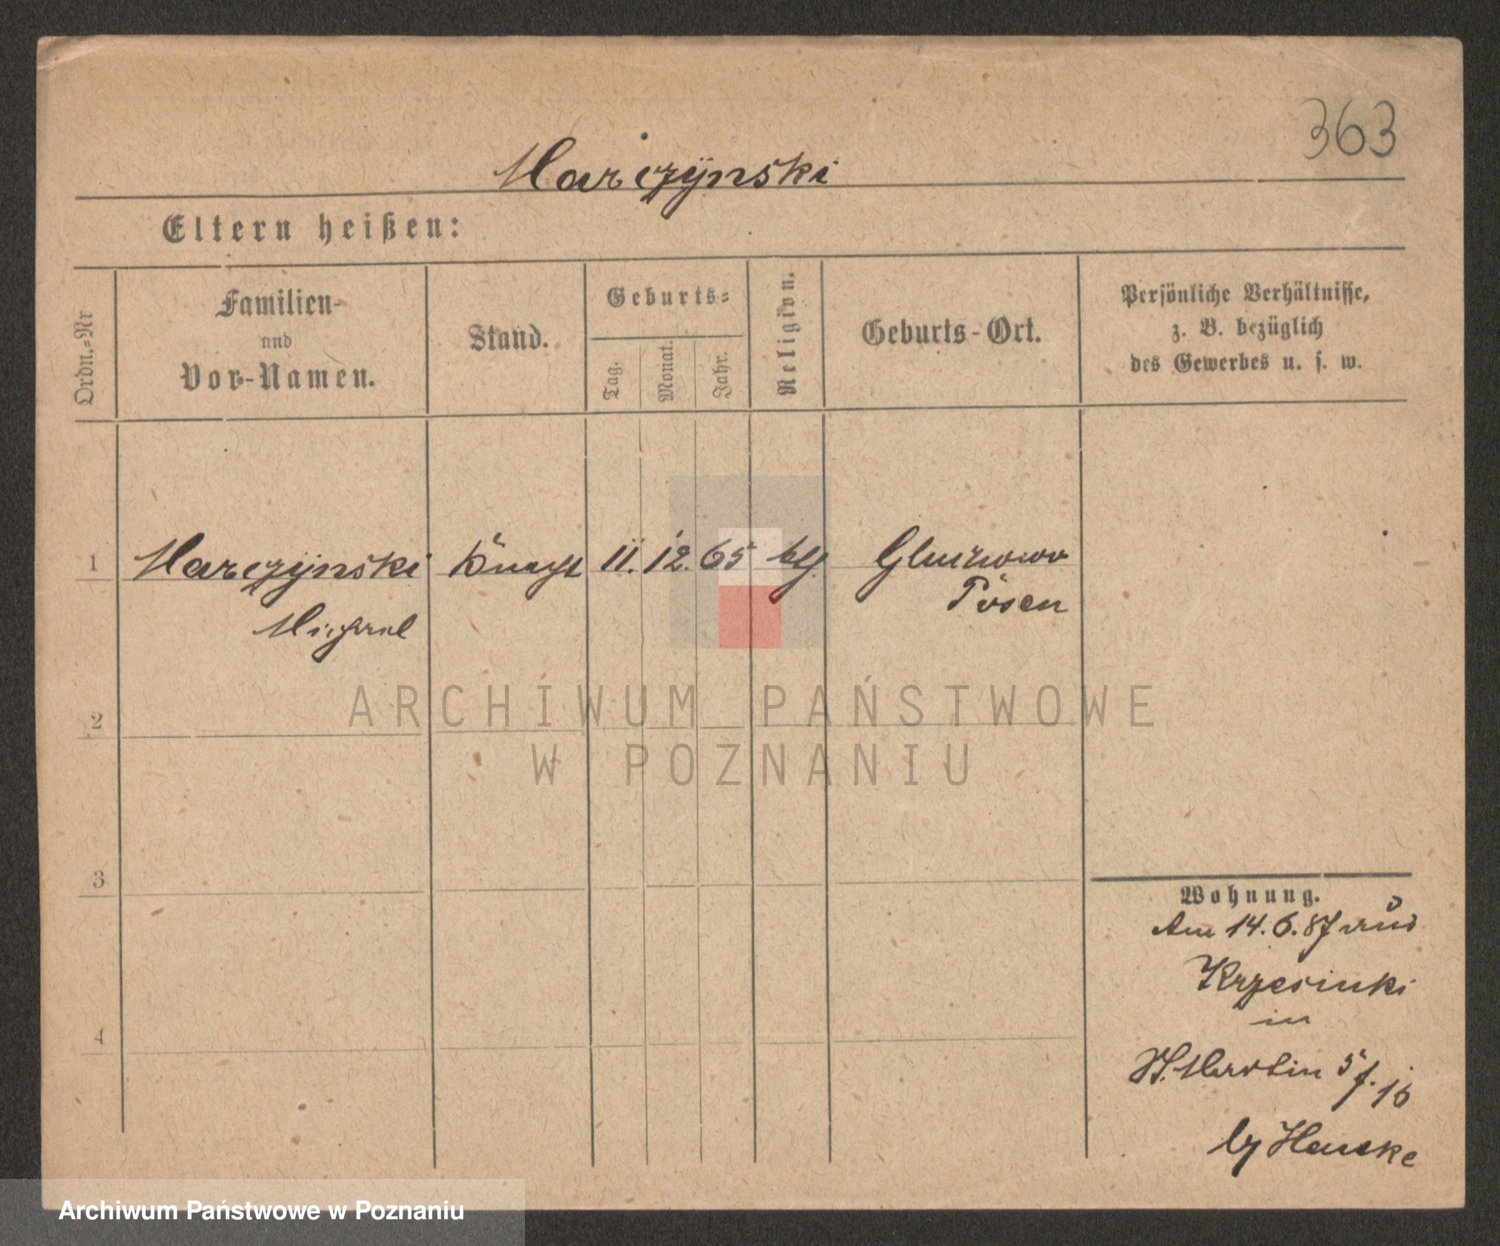 363
Marczynski
Eltern heißen:
Ordn.=Nr
Familien-
und
Vor-Namen.
Stand.
Geburts=
Tag.
Monat.
Jahr.
Religion.
Geburts-Ort.
Persönliche Verhältnisse,
z. B. bezüglich
des Gewerbes u. s. w.
1
Marczynski
Michael
11. 12. 65
Posen
2
3
4
Wohnung.
Am 14. 6. 87
Krzesinki
in
St. Martin 57. 16
Hauske
ARCHIWUM PAŃSTWOWE
W POZNANIU
Archiwum Państwowe w Poznaniu